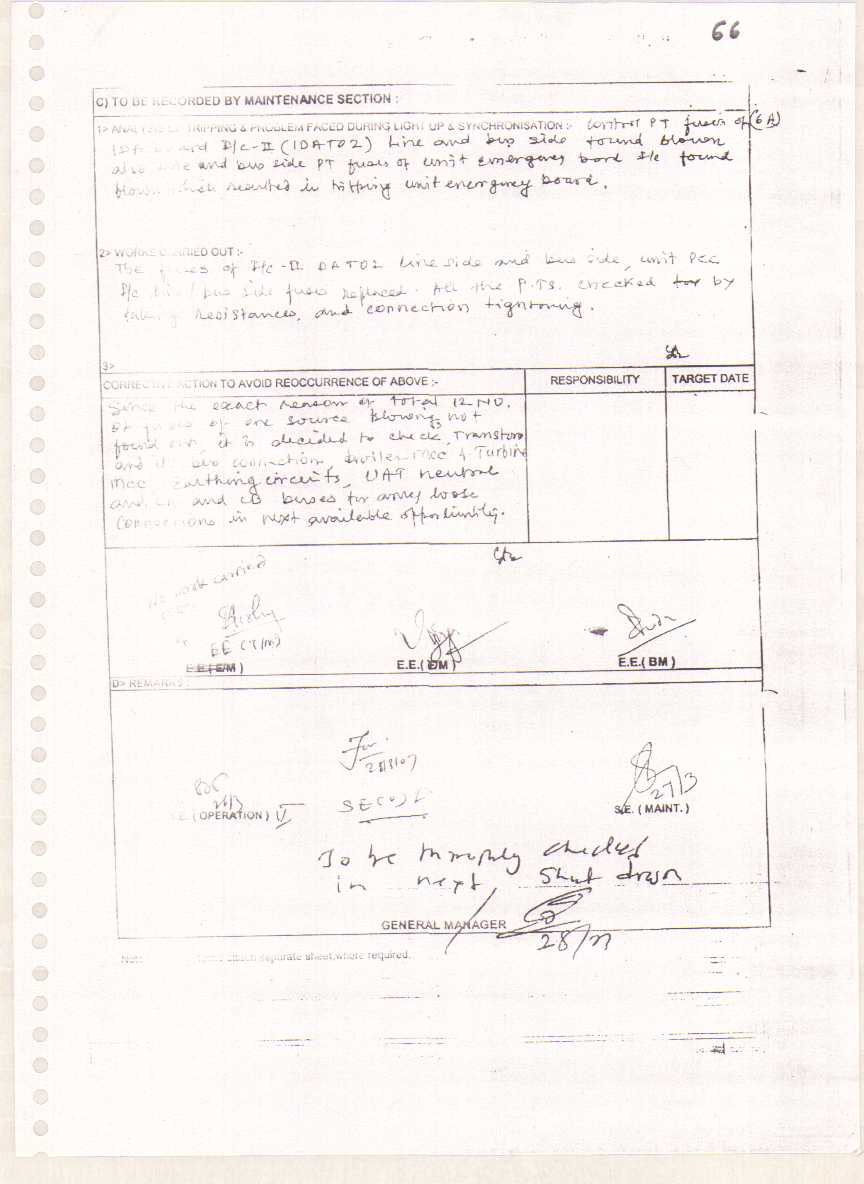 66
C) TO BE RECORDED BY MAINTENANCE SECTION :
1> ANALYSIS OF TRIPPING & PROBLEM FACED DURING LIGHT UP & SYNCHRONISATION :- Control PT fuses of (6A)
board I/c-II (1DAT02) Line and bus side found blown
also line and bus side PT fuses of unit emergency bord I/c found
blown which resulted in tripping unit energency board.
2> WORKS CARRIED OUT :-
The fuses of I/c-II DAT02 line side and bus side, unit PCC
I/c line/bus side fuses replaced. All the P.TS. checked for by
taking resistances, and connection tightening.
3>
CORRECTIVE ACTION TO AVOID REOCCURRENCE OF ABOVE :- RESPONSIBILITY TARGET DATE
Since the exact reason of total 12 NO.
of fuses of one source blowing not
found out, it is decided to check, Transform
and it's bus connection, Boiler MCC & Turbine
MCC Earthing circuits, UAT neutral
and and CB buses for any loose
Connections in next available opportunity.
No work carried
EE (T/M)
E.E.( E/M ) E.E.( DM ) E.E.( BM )
D> REMARKS :
28/3/07
27/3
S.E. ( OPERATION ) SE(O) S.E. ( MAINT. )
To be thoroughly checked
in next Shut down
GENERAL MANAGER
28/
Note separate sheet, where required.